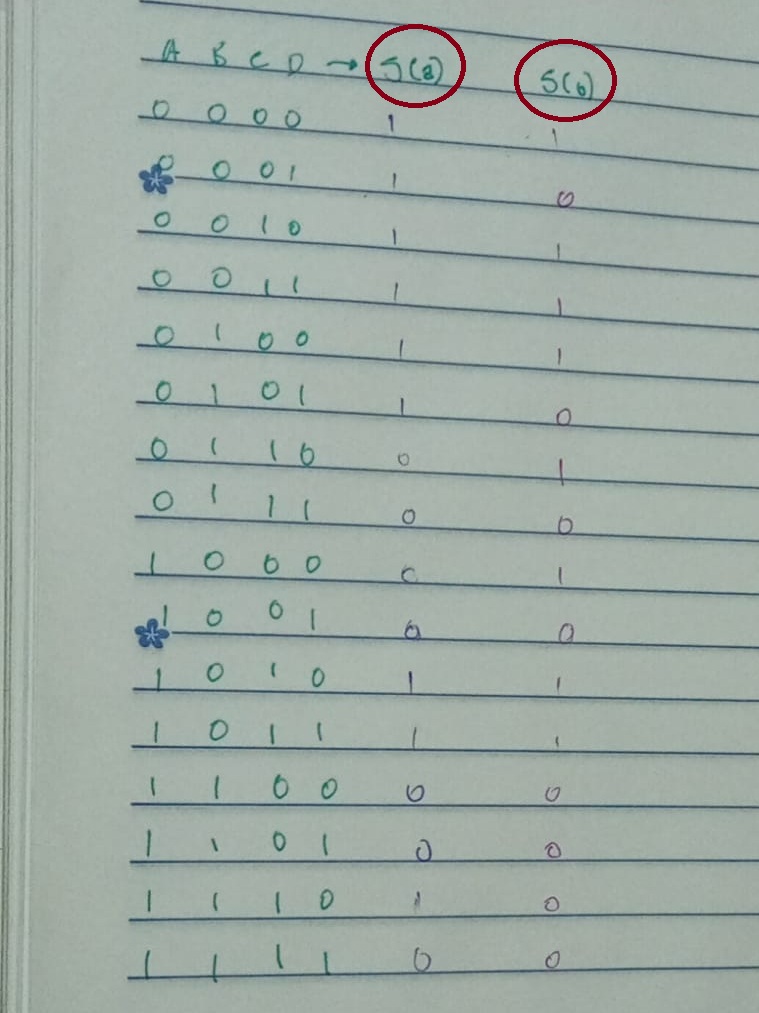 A B C D → S(a) S(b)
0 0 0 0 1 1
0 0 0 1 1 0
0 0 1 0 1 1
0 0 1 1 1 1
0 1 0 0 1 1
0 1 0 1 1 0
0 1 1 0 0 1
0 1 1 1 0 0
1 0 0 0 0 1
1 0 0 1 0 0
1 0 1 0 1 1
1 0 1 1 1 1
1 1 0 0 0 0
1 1 0 1 0 0
1 1 1 0 1 0
1 1 1 1 0 0